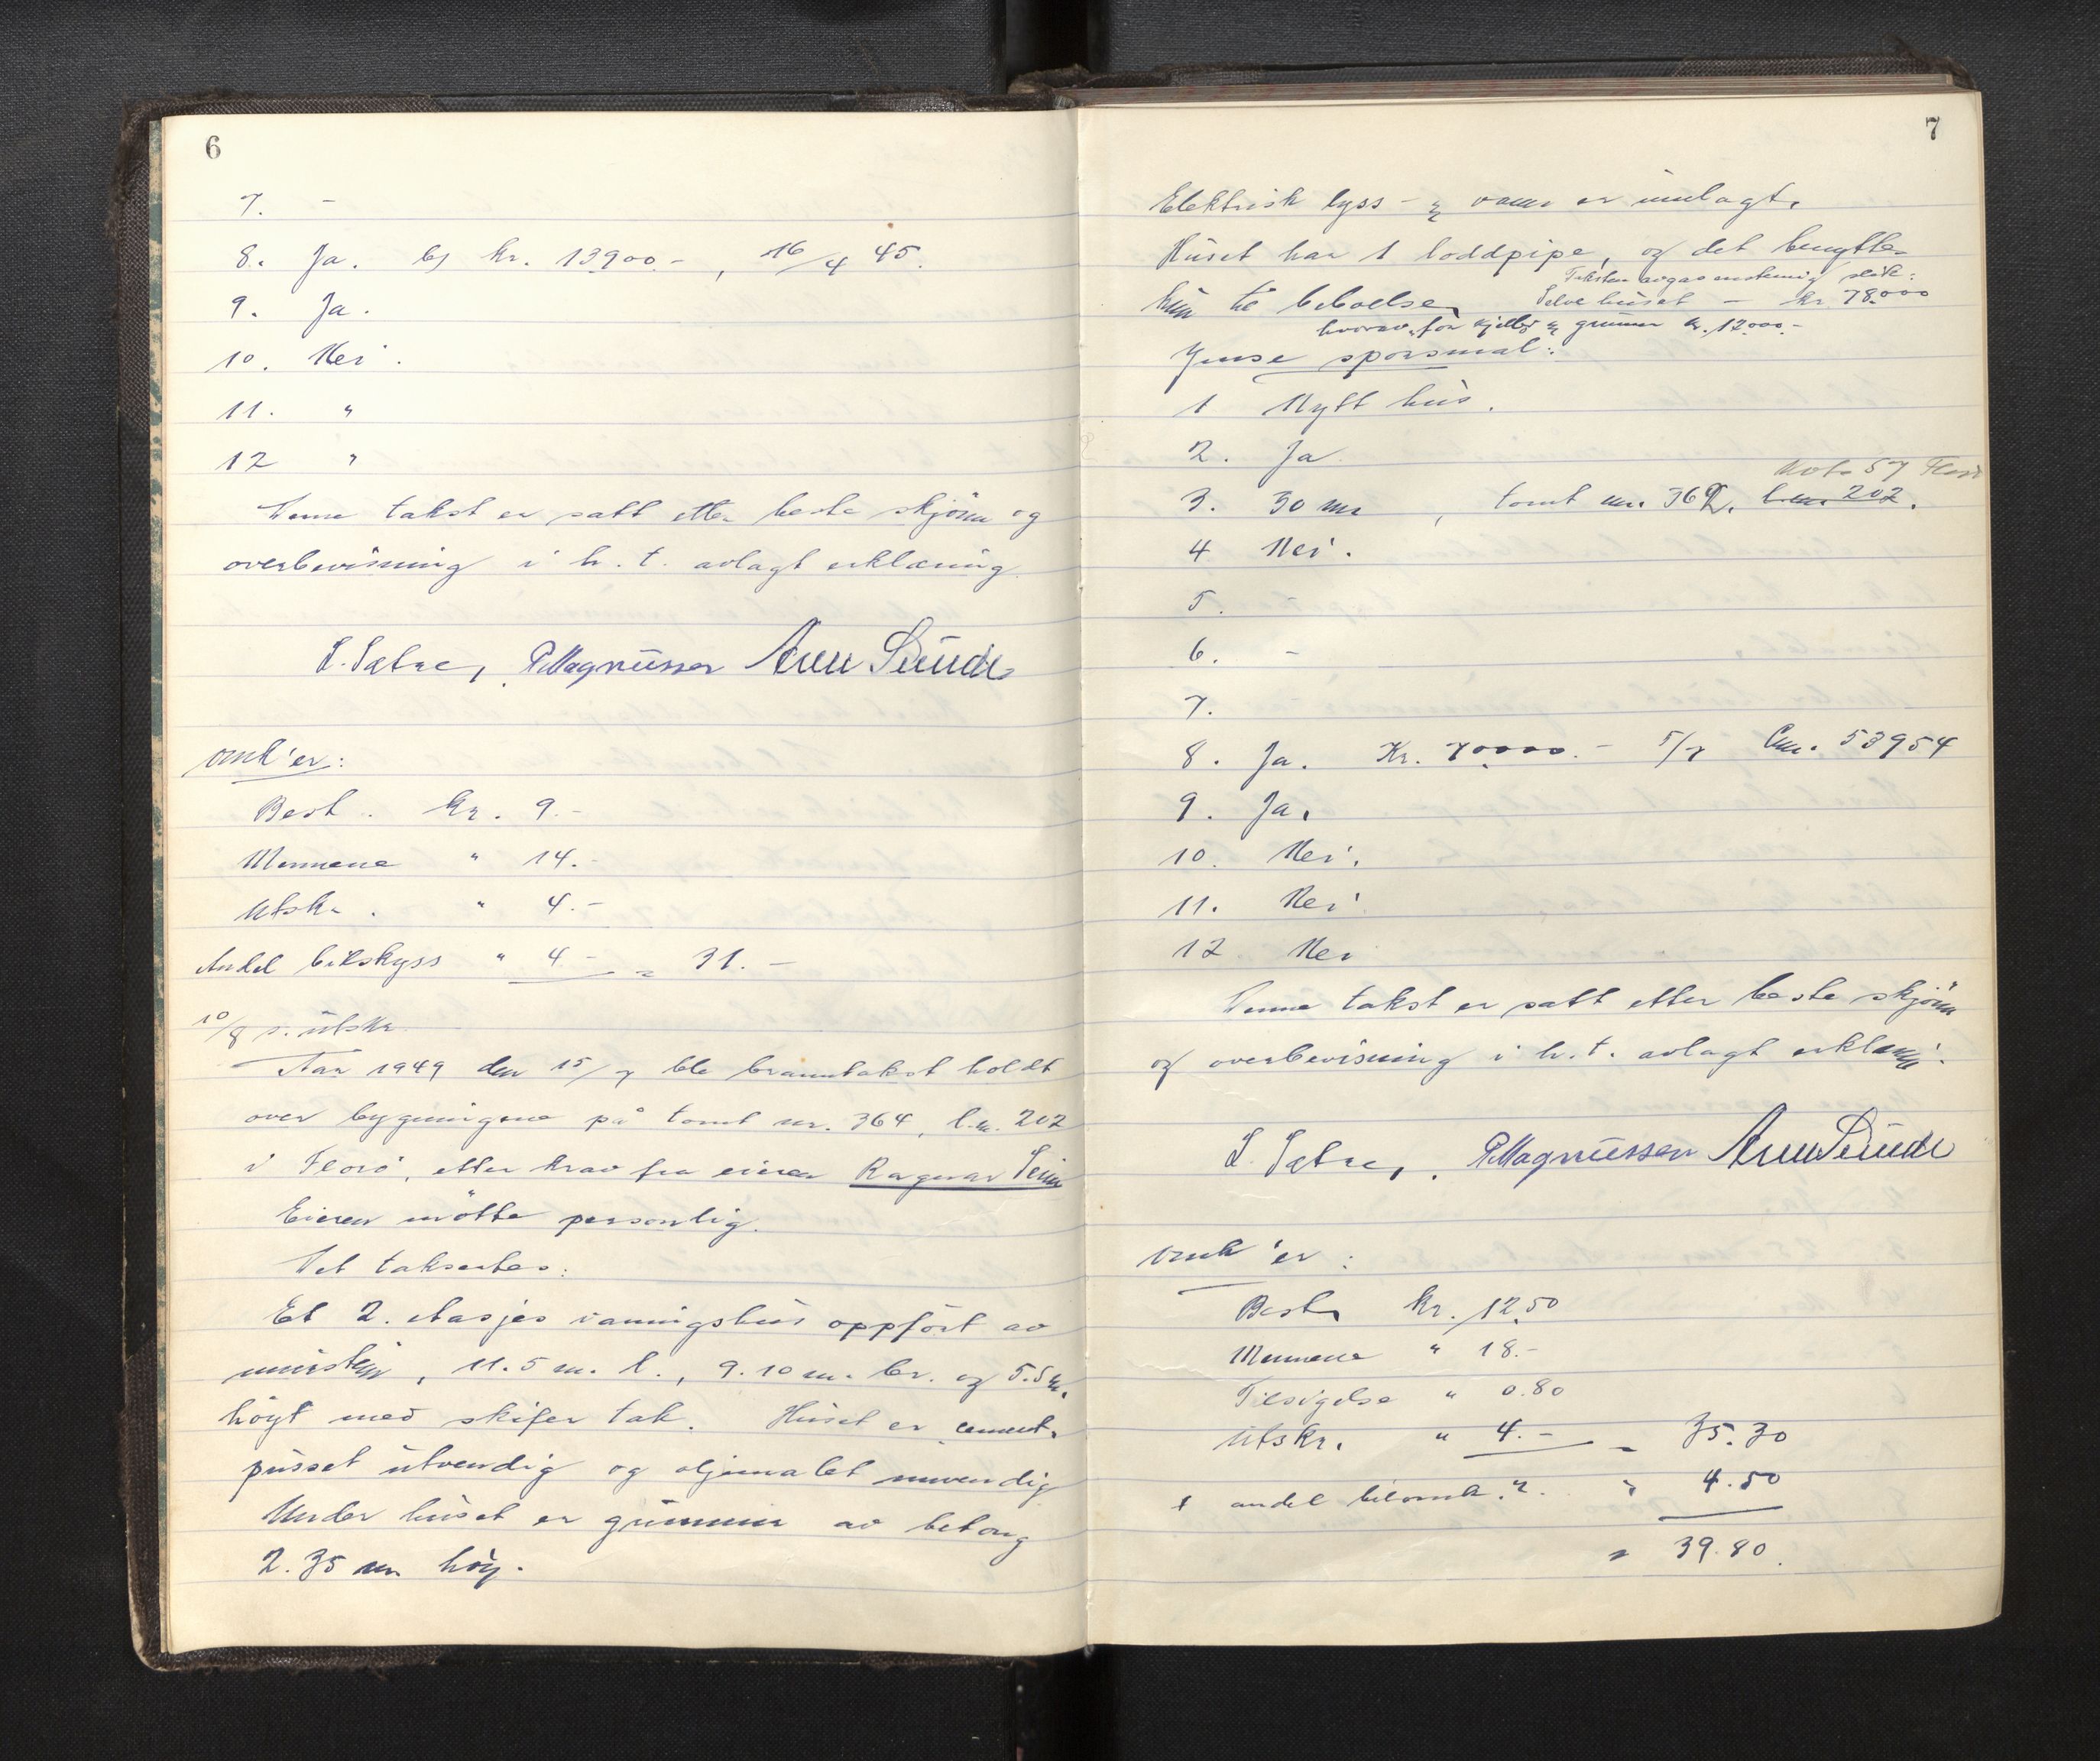 6
7. –
8. Ja. bf kr. 13900.- , 16/4 45.
9. Ja.
10. Nei.
11. "
12 "
Denne takst er satt etter beste skjönn og
overbevisning i h. t. avlagt erklæring.
S. Sætre, P. Magnussen Arne Sunde
omk'er:
Best. kr. 9.-
Mennene " 14.-
Utskr. " 4.-
Andel bilskyss " 4.- = 31.-
10/8 s. utskr.
Aar 1949 den 15/7 ble branntakst holdt
over bygningene på tomt nr. 364, l.nr. 202
i Florö, etter krav fra eieren Ragnar
Eieren mötte personlig.
Det taksertes:
Et 2. etasjes vaaningshus oppfört av
murstein, 11.5 m. l., 9.10 m. br. og 5.5 m.
höyt med skifer tak. Huset er cement-
pusset utvendig og oljemalet innvendig
Under huset er grunnmur av betong
2.35 m höy.
7
Elektrisk lys- og varme er innlagt.
Huset har 1 loddpipe, og det benyttes
Taksten avgas enstemmig slik:
kun til beboelse. Selve huset – kr. 78.000
hvorav for kjeller og grunnmur kr. 12.000.-
Jense sporsmal:
1 Nytt hus.
2. Ja
Nobr 57 Florö
3. 30 m , tomt nr. 362. l.nr. 202.
4 Nei.
5. –
6. –
7.
8. Ja. Kr. 70.000.- 5/7 Lnr. 53954
9. Ja.
10. Nei.
11. Nei
12 Nei
Denne takst er satt etter beste skjönn
og overbevisning i h. t. avlagt erklæring.
S. Sætre, P. Magnussen Arne Sunde
omk'er:
Best. kr. 12.50
Mennene " 18.-
Tilsigelse " 0.80
Utskr. " 4.- = 35.30
+ andel bilomk. " " 4.50
= 39.80.